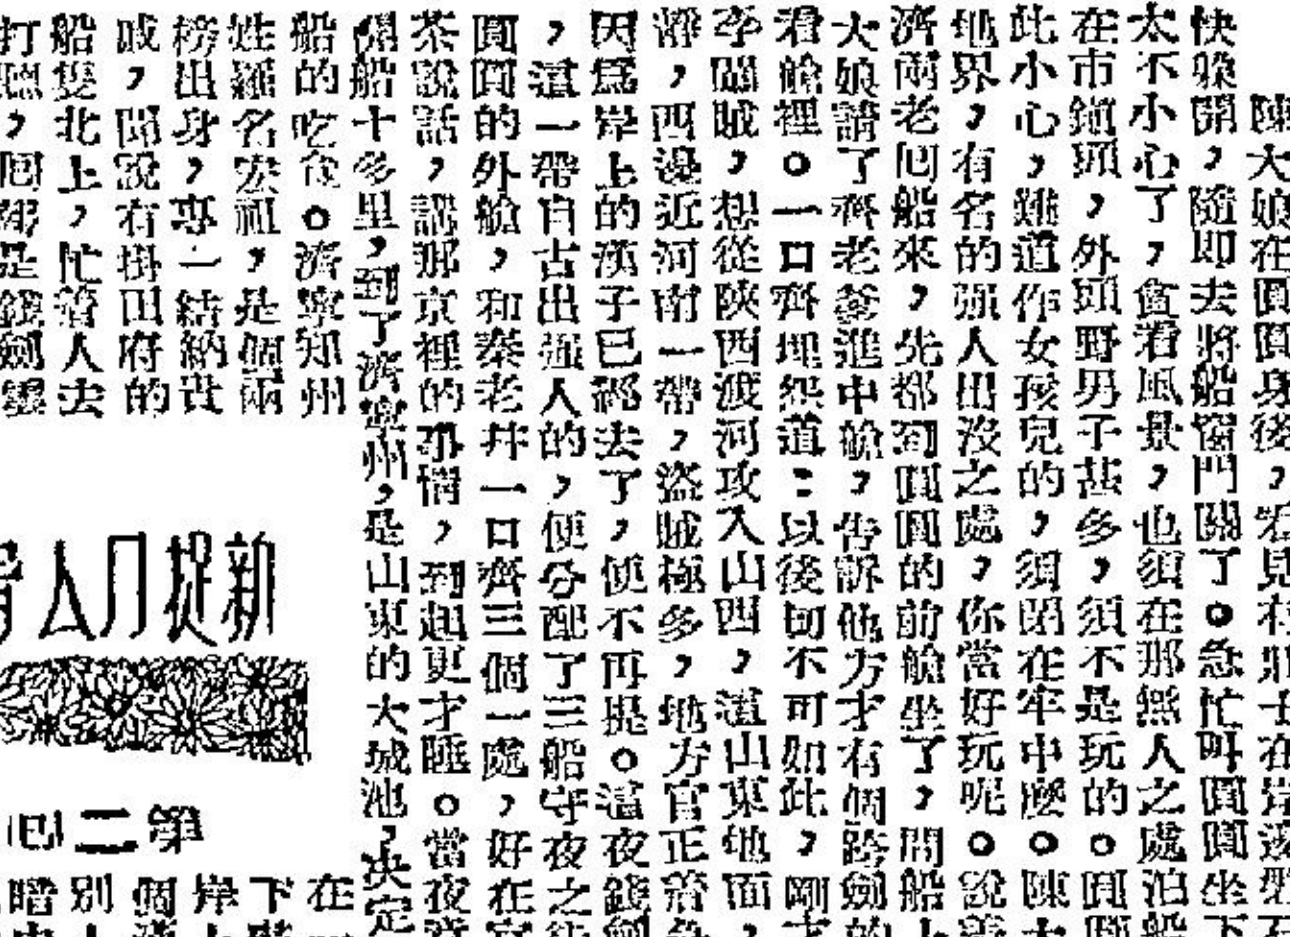 陳大娘在圓圓身後,若見村壯士在岸邊
快躲開,隨即去將船窗門關了。急忙叫圓圓坐下
太不小心了,貪看風景,也須在那無人之處泊船
在市鎮頭,外頭野男子甚多,須不是玩的。圓圓
此小心,難道作女孩兒的,須閉在牢中麼。陳大
地界,有名的强人出沒之處,你當好玩呢。說着
濟兩老囘船來,先都到圓圓的前艙坐了,問船上
大娘請了齊老爹進中艙,告訴他方才有個跨劍的
看艙裡。一口齊埋怨道:以後切不可如此,剛才
李闖賊,想從陝西渡河攻入山西,這山東地面,
靜,西邊近河南一帶,盜賊極多,地方官正著急
因爲岸上的漢子已經去了,便不再提。這夜錢劍
,這一帶自古出强人的,便分配了三船守夜之
圓圓的外艙,和秦老井一口齊三個一處,好在
茶說話,講那京裡的事情,到起更才睡。當夜
船十多里,到了濟寧州,是山東的大城池,決定
船的吃食。濟寧知州
姓羅名宏祖,是個兩
榜出身,專一結納貴
戚,聞說有掛田府的
船隻北上,忙著人去
打聽,囘都是錢劍雲
新捉刀人
第二囘
在
下
岸上
個漢
別人
暗